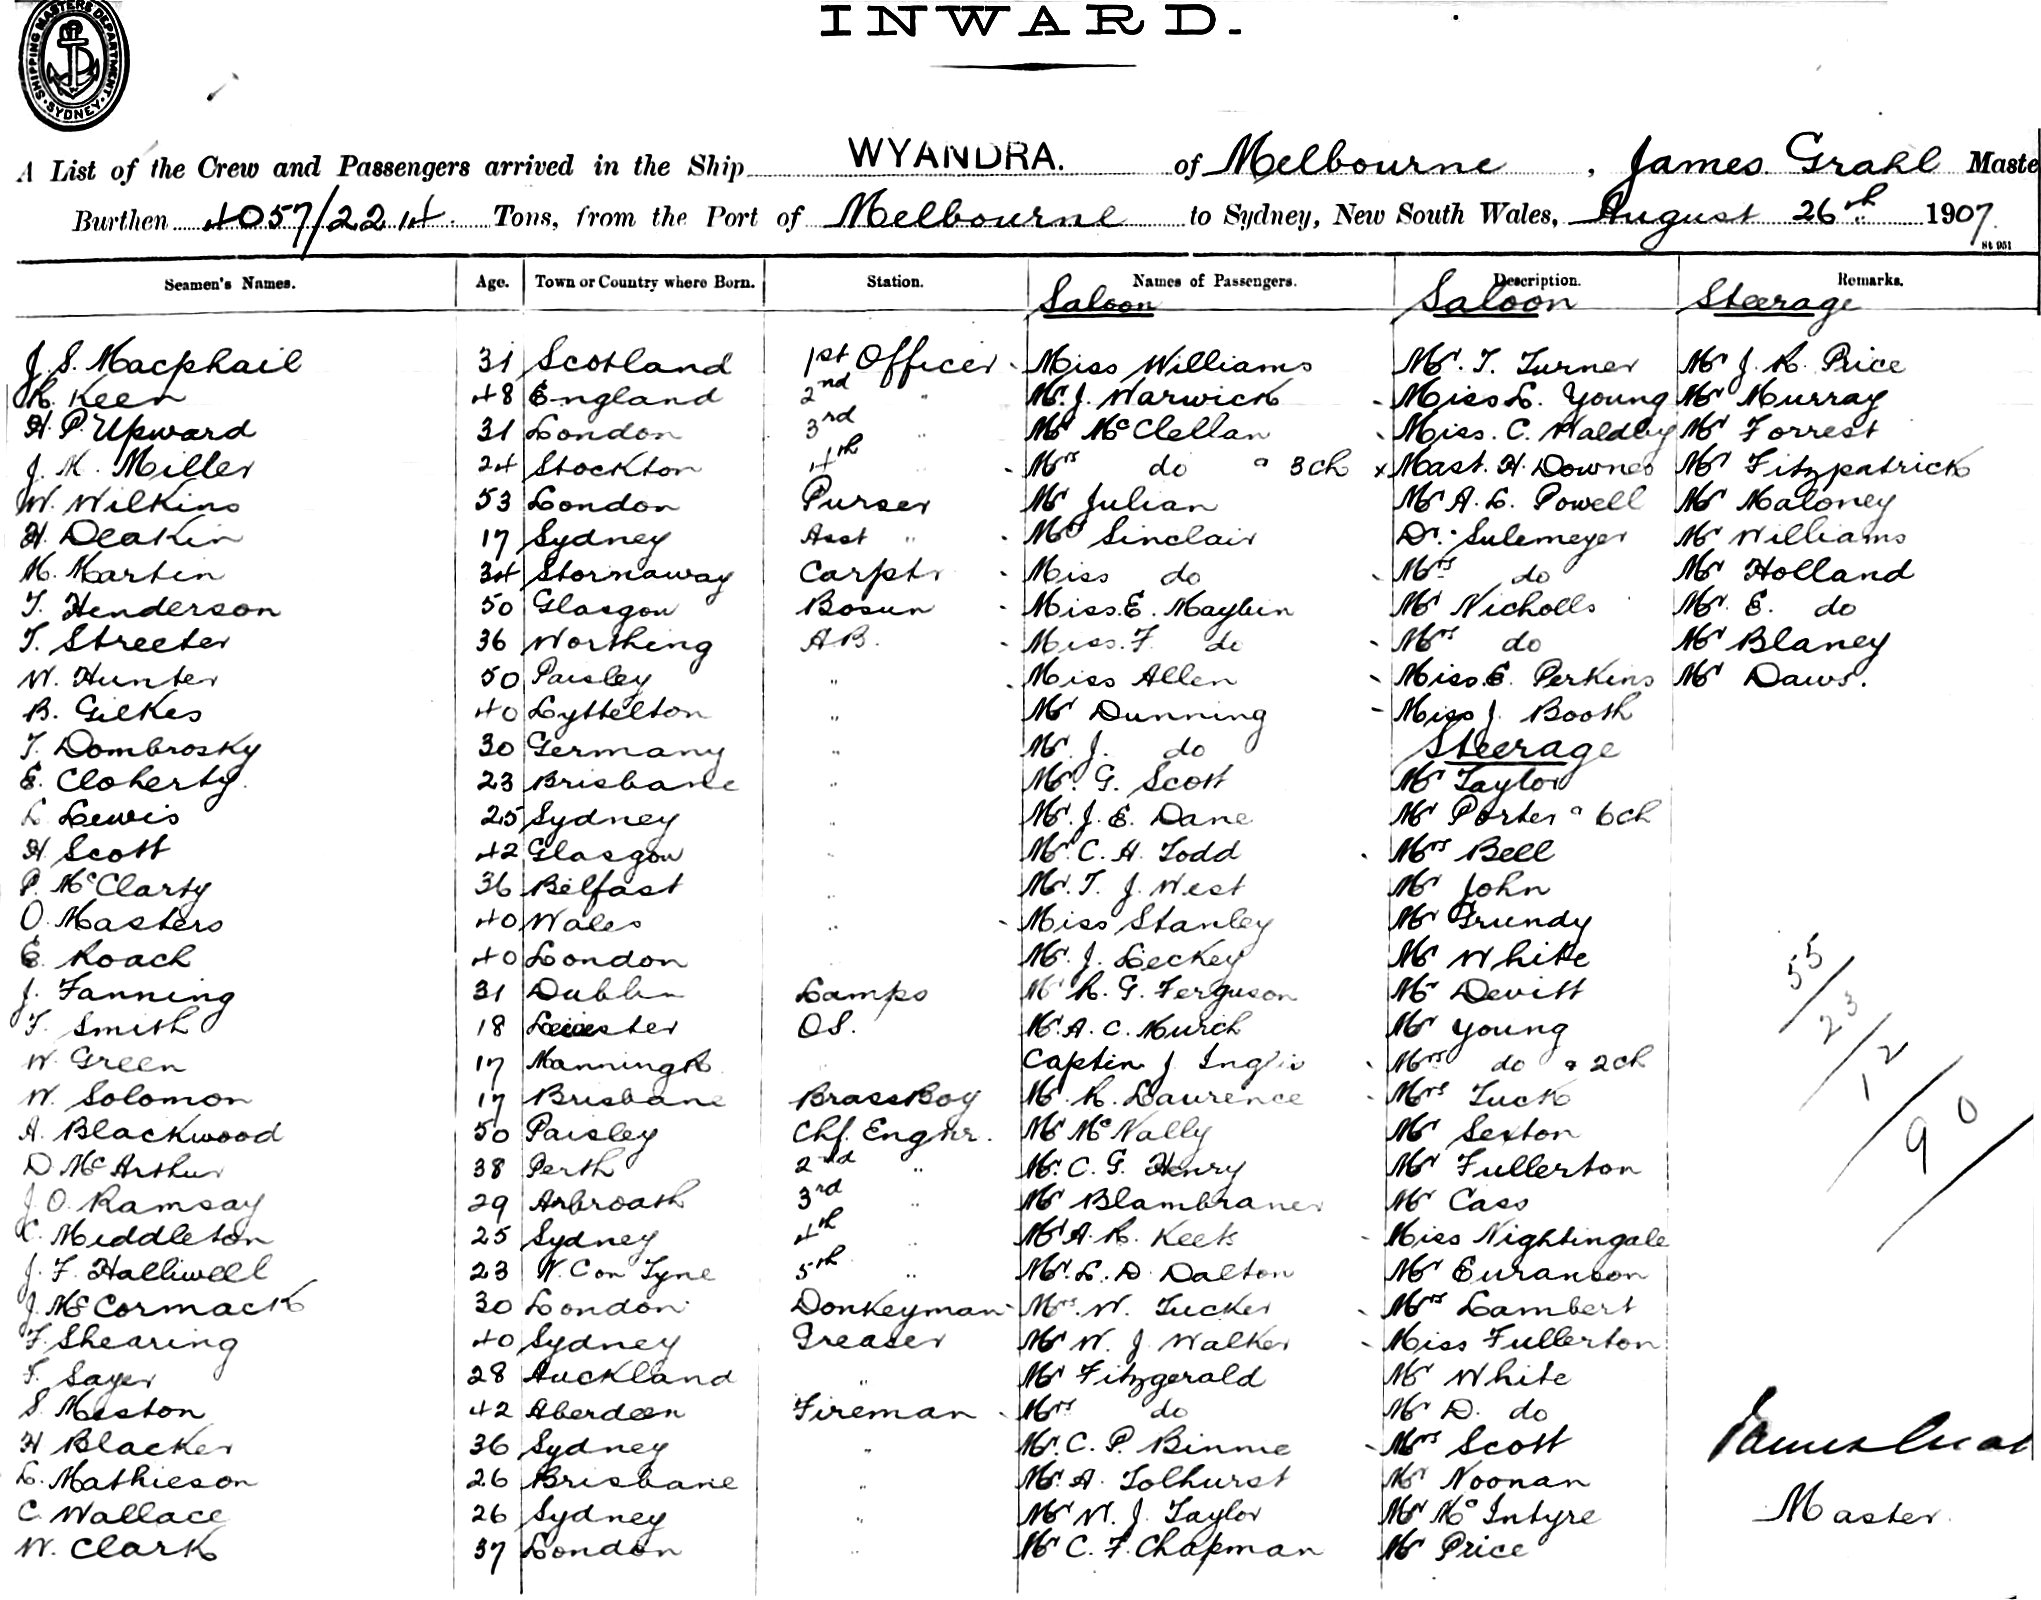 SHIPPING MASTERS DEPARTMENT · SYDNEY ·
INWARD.
A List of the Crew and Passengers arrived in the Ship WYANDRA. of Melbourne, James Grahl Maste
Burthen 4057/2214. Tons, from the Port of Melbourne to Sydney, New South Wales, August 26th 1907.
St 951
Seamen's Names. Age. Town or Country where Born. Station. Names of Passengers. Description. Remarks.
Saloon Saloon Steerage
J. S. Macphail 31 Scotland 1st Officer Miss Williams Mr. T. Turner Mr J. R. Price
R. Keen 48 England 2nd " Mr. J. Warwick Miss L. Young Mr Murray
H. P. Upward 31 London 3rd " Mr McClellan Miss. C. Haldby Mr Forrest
J. K. Miller 24 Stockton 4th Mrs do & 3ch x Mast. H. Downes Mr Fitzpatrick
W. Wilkins 53 London Purser Mr Julian Mr A. L. Powell Mr Maloney
H. Deakin 17 Sydney Asst " Mrs Sinclair Dr. Sulemeyer Mr Williams
M. Martin 34 Stornaway Carptr Miss do Mrs do Mr Holland
T. Henderson 50 Glasgow Bosun Miss. E. Maybin Mr Nicholls Mr. E. do
T. Streeter 36 Worthing AB. Miss. F. do Mrs do Mr Blaney
W. Hunter 50 Paisley " Miss Allen Miss. E. Perkins Mr Daws.
B. Gilkes 40 Lyttelton " Mr Dunning Miss J. Booth
T. Dombrosky 30 Germany " Mr. J. do Steerage
E. Cloherty. 23 Brisbane " Mr. G. Scott Mr Taylor
L. Lewis 25 Sydney " Mr. J. E. Dane Mr Porter & 6ch
H Scott 42 Glasgow " Mr. C. H. Todd Mrs Bell
P. McClarty 36 Belfast " Mr. T. J. West Mr John
O. Masters 40 Wales " Miss Stanley Mr Grundy
E. Roach 40 London Mr. J. Leckey Mr White
J. Fanning 31 Dublin Lamps Mr R. G. Ferguson Mr Devitt
F. Smith 18 Leicester OS. Mr. A. C. Murch Mr Young
W. Green 17 Captin J Inglis Mrs do & 2ch
W. Solomon 17 Brisbane Brass Boy Mr. R. Laurence Mrs Tuck
A. Blackwood 50 Paisley Chf. Engnr. Mr McNally Mr Sexton
D McArthur 38 Perth 2nd " Mr. C. G. Henry Mr Fullerton
J. O. Ramsay 29 Arbroath 3rd " Mr Mr Cass
C. Middleton 25 Sydney 4th " Mr A. R. Keets Miss Nightingale
J. F. Halliwell 23 N. C on Tyne 5th " Mr. L. D. Dalton Mr
J. McCormack 30 London Donkeyman Mrs. W. Tucker Mrs Lambert
F. Shearing 40 Sydney Greaser Mr W. J. Walker Miss Fullerton
F. Sayer 28 Auckland " Mr Fitzgerald Mr White
S. Meston 42 Aberdeen Fireman Mrs do Mr D. do
H Blacker 36 Sydney " Mr. C. P. Binnie Mrs Scott
L. Mathieson 26 Brisbane " Mr. A. Tolhurst Mr Noonan
C. Wallace 26 Sydney " Mr W. J. Taylor Mr McIntyre
W. Clark 37 London " Mr C. F. Chapman Mr Price
55/23/12/90
James Grahl
Master.